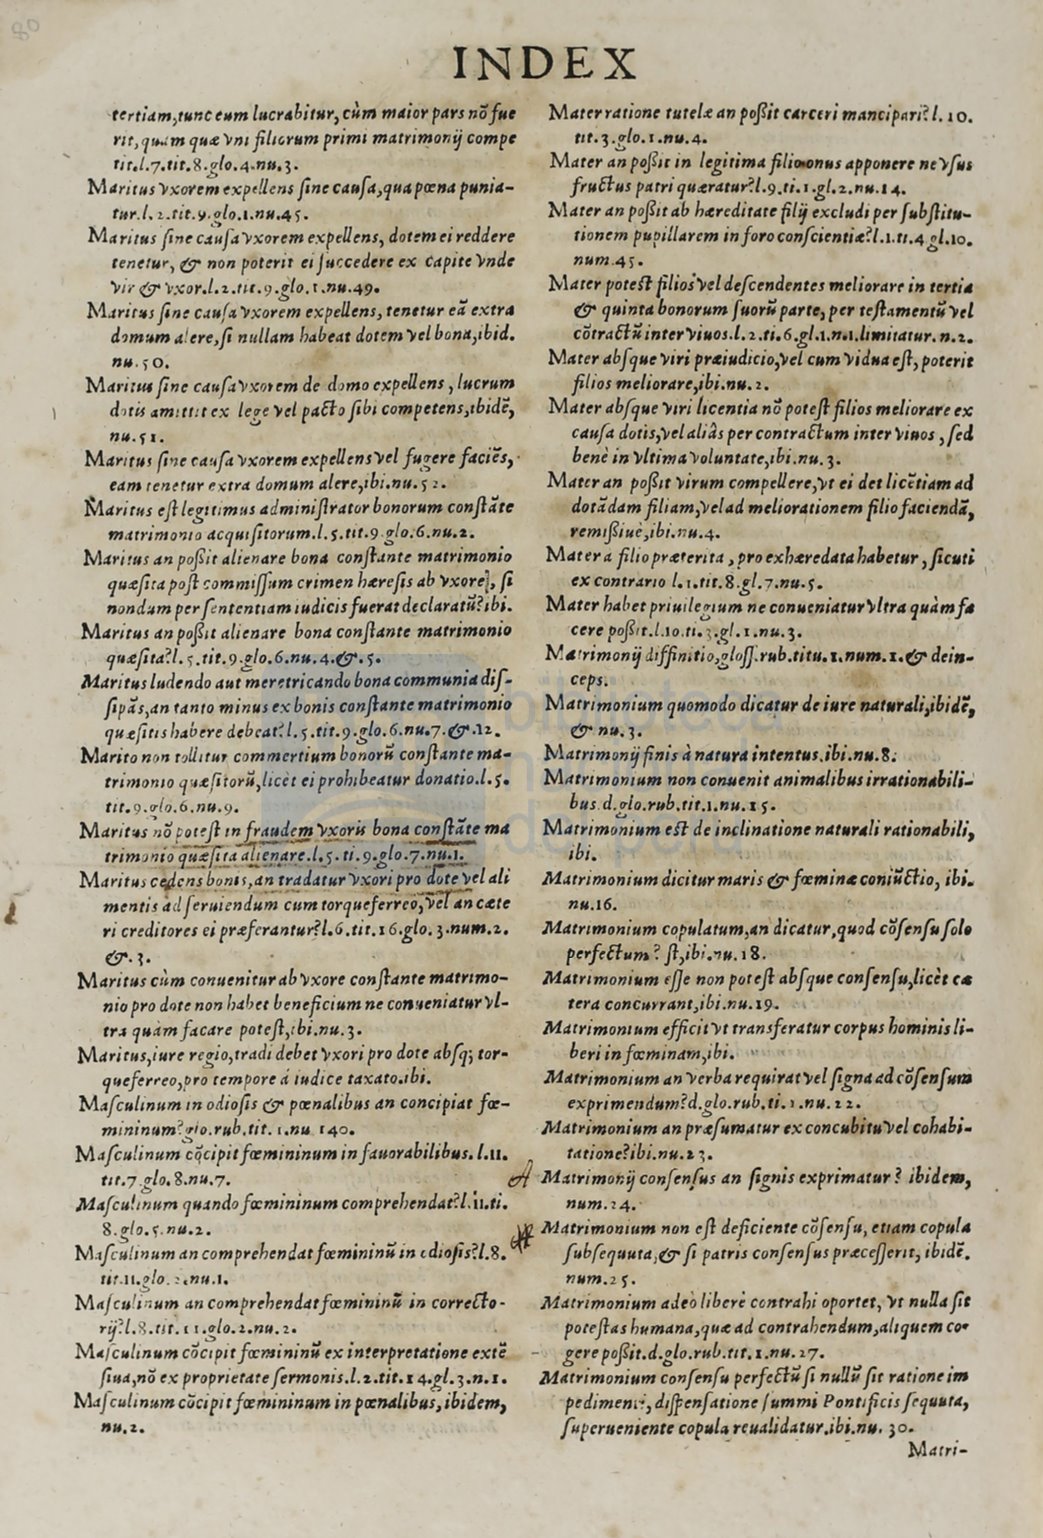 80
INDEX
tertiam, tunc eum lucrabitur, cùm maior pars nõ fue
rit, quàm quæ vni filiorum primi matrimonij compe
tit.l.7.tit.8.glo.4.nu.3.
Maritus vxorem expellens sine causa, qua pœna punia-
tur.l.2.tit.9.glo.1.nu.45.
Maritus sine causa vxorem expellens, dotem ei reddere
tenetur, & non poterit ei succedere ex capite vnde
vir & vxor.l.2.tit.9.glo.1.nu.49.
Maritus sine causa vxorem expellens, tenetur eã extra
domum alere, si nullam habeat dotem vel bona, ibid.
nu.50.
Maritus sine causa vxorem de domo expellens, lucrum
dotis amittit ex lege vel pacto sibi competens, ibidẽ,
nu.51.
Maritus sine causa vxorem expellens vel fugere faciẽs,
eam tenetur extra domum alere, ibi.nu.52.
Maritus est legitimus administrator bonorum constãte
matrimonio acquisitorum.l.5.tit.9.glo.6.nu.2.
Maritus an poßit alienare bona constante matrimonio
quæsita post commissum crimen hæresis ab vxore, si
nondum per sententiam iudicis fuerat declaratũ? ibi.
Maritus an poßit alienare bona constante matrimonio
quæsita?l.5.tit.9.glo.6.nu.4.&.5.
Maritus ludendo aut meretricando bona communia dis-
sipãs, an tanto minus ex bonis constante matrimonio
quæsitis habere debeat?l.5.tit.9.glo.6.nu.7.&.12.
Marito non tollitur commertium bonorũ constante ma-
trimonio quæsitorũ, licèt ei prohibeatur donatio.l.5.
tit.9.glo.6.nu.9.
Maritus nõ potest in fraudem vxoris bona constãte ma
trimonio quæsita alienare.l.5.ti.9.glo.7.nu.1.
Maritus cedens bonis, an tradatur vxori pro dote vel ali
mentis ad seruiendum cum torqueferreo, vel an cæte
ri creditores ei præferantur?l.6.tit.16.glo.3.num.2.
&.3.
Maritus cùm conuenitur ab vxore constante matrimo-
nio pro dote non habet beneficium ne conueniatur vl-
tra quàm facare potest, ibi.nu.3.
Maritus, iure regio, tradi debet vxori pro dote absq; tor-
queferreo, pro tempore á iudice taxato.ibi.
Masculinum in odiosis & pœnalibus an concipiat fœ-
mininum?glo.rub.tit.1.nu.140.
Masculinum cõcipit fœmininum in fauorabilibus.l.11.
tit.7.glo.8.nu.7.
Masculinum quando fœmininum comprehendat?l.11.ti.
8.glo.5.nu.2.
Masculinum an comprehendat fœmininũ in odiosis?l.8.
tit.11.glo.2.nu.1.
Masculinum an comprehendat fœmininũ in correcto-
rij?l.8.tit.11.glo.2.nu.2.
Masculinum cõcipit fœmininũ ex interpretatione extẽ
siua, nõ ex proprietate sermonis.l.2.tit.14.gl.3.n.1.
Masculinum cõcipit fœmininum in pœnalibus, ibidem,
nu.2.
Mater ratione tutelæ an poßit carceri mancipari?l.10.
tit.3.glo.1.nu.4.
Mater an poßit in legitima filio onus apponere ne vsus
fructus patri quæratur?l.9.ti.1.gl.2.nu.14.
Mater an poßit ab hæreditate filij excludi per substitu-
tionem pupillarem in foro conscientiæ?l.1.ti.4.gl.10.
num.45.
Mater potest filios vel descendentes meliorare in tertia
& quinta bonorum suorũ parte, per testamentũ vel
cõtractũ inter viuos.l.2.ti.6.gl.1.n.1.limitatur.n.2.
Mater absque viri præiudicio, vel cum vidua est, poterit
filios meliorare, ibi.nu.2.
Mater absque viri licentia nõ potest filios meliorare ex
causa dotis, vel aliâs per contractum inter viuos, sed
benè in vltima voluntate, ibi.nu.3.
Mater an poßit virum compellere, vt ei det licẽtiam ad
dotãdam filiam, vel ad meliorationem filio faciendã,
remißiuè, ibi.nu.4.
Mater a filio præterita, pro exhæredata habetur, sicuti
ex contrario l.1.tit.8.gl.7.nu.5.
Mater habet priuilegium ne conueniatur vltra quàm fa
cere poßit.l.10.ti.3.gl.1.nu.3.
Matrimonij diffinitio, gloss.rub.titu.1.num.1.& dein-
ceps.
Matrimonium quomodo dicatur de iure naturali, ibidẽ,
& nu.3.
Matrimonij finis à natura intentus, ibi.nu.8.
Matrimonium non conuenit animalibus irrationabili-
bus.d.glo.rub.tit.1.nu.15.
Matrimonium est de inclinatione naturali rationabili,
ibi.
Matrimonium dicitur maris & fœminæ coniũctio, ibi.
nu.16.
Matrimonium copulatum, an dicatur, quod cõsensu solo
perfectum? st, ibi.nu.18.
Matrimonium esse non potest absque consensu, licèt cæ
tera concurrant, ibi.nu.19.
Matrimonium efficit vt transferatur corpus hominis li-
beri in fœminam, ibi.
Matrimonium an verba requirat vel signa ad cõsensum
exprimendum?d.glo.rub.ti.1.nu.22.
Matrimonium an præsumatur ex concubitu vel cohabi-
tatione?ibi.nu.23.
Matrimonij consensus an signis exprimatur? ibidem,
num.24.
Matrimonium non est deficiente cõsensu, etiam copula
subsequuta, & si patris consensus præcesserit, ibidẽ.
num.25.
Matrimonium adeò liberè contrahi oportet, vt nulla sit
potestas humana, quæ ad contrahendum, aliquem co-
gere poßit.d.glo.rub.tit.1.nu.27.
Matrimonium consensu perfectũ si nullũ sit ratione im
pedimenti, dispensatione summi Pontificis sequuta,
superueniente copula reualidatur.ibi.nu.30.
Matri-